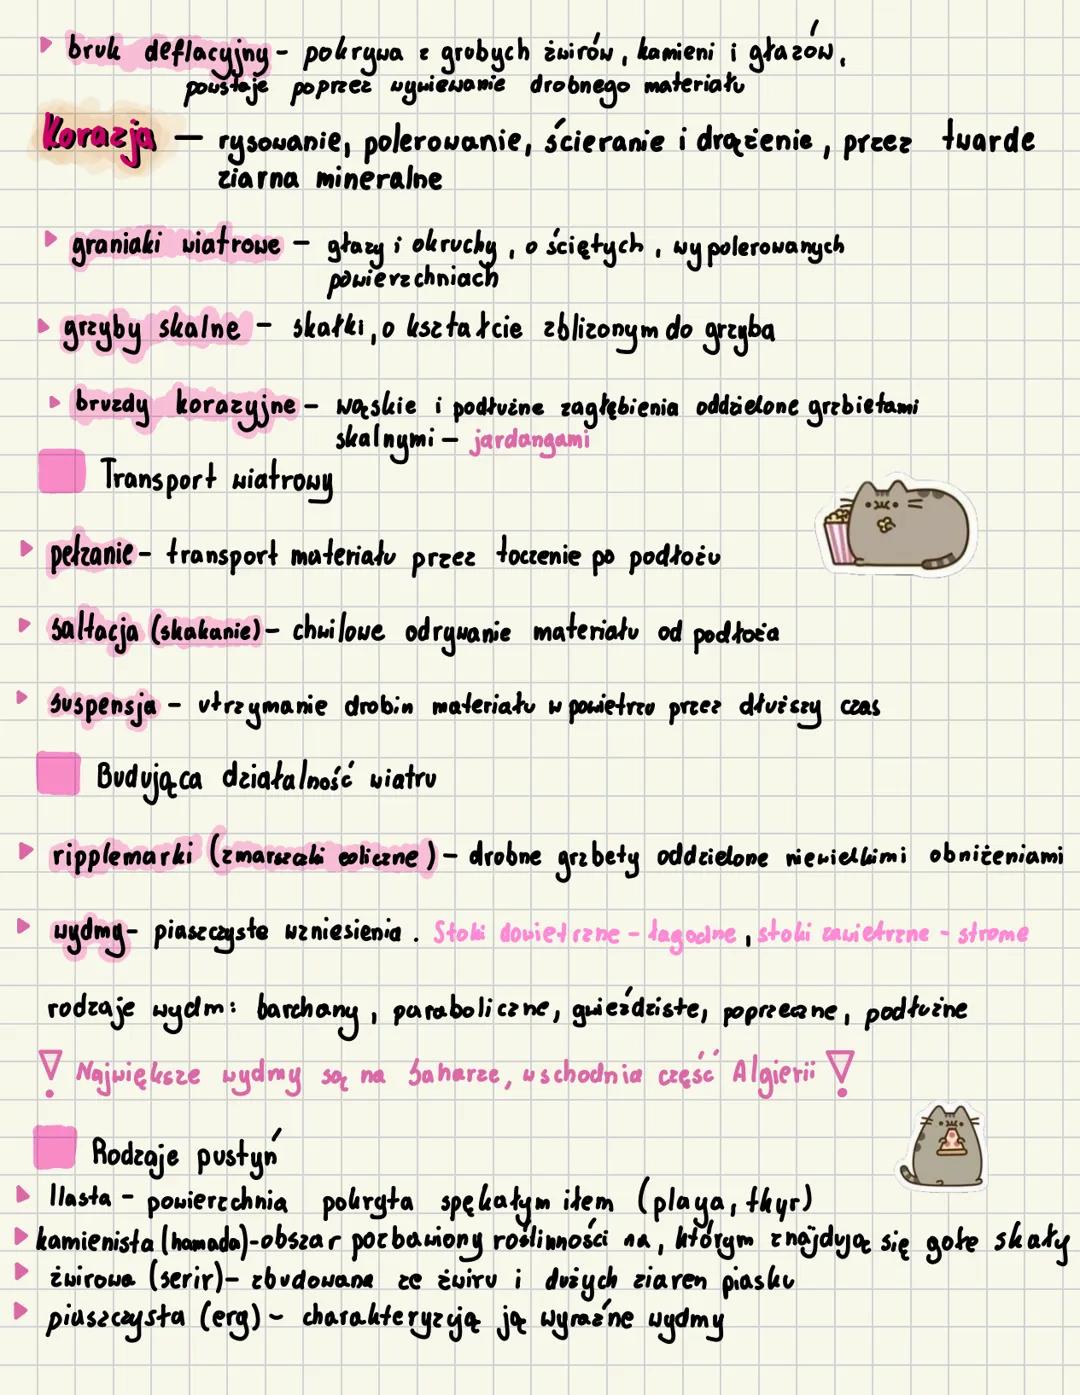 bruk deflacyjny - pokrywa z grubych żwirów, kamieni i głazów,
powstaje poprzez wywiewanie drobnego materiału
Korazja — rysowanie, polerowanie, ścieranie i drążenie, przez twarde
ziarna mineralne
graniaki wiatrowe - głazy i okruchy, o ściętych, wypolerowanych
powierzchniach
grzyby skalne - skałki, o kształcie zbliżonym do grzyba
bruzdy korazyjne - wąskie i podłużne zagłębienia oddzielone grzbietami
skalnymi - jardangami
Transport wiatrowy
pełzanie - transport materiału przez toczenie po podłożu
saltacja (skakanie) - chwilowe odrywanie materiału od podłoża
suspensja - utrzymanie drobin materiału w powietrzu przez dłuższy czas
Budująca działalność wiatru
ripplemarki (zmarszczki eoliczne) - drobne grzbety oddzielone niewielkimi obniżeniami
wydmy - piaszczyste wzniesienia. Stoki dowietrzne - łagodne, stoki zawietrzne - strome
rodzaje wydm: barchany, paraboliczne, gwieździste, poprzeczne, podłużne
! Największe wydmy są na Saharze, wschodnia część Algierii !
Rodzaje pustyń
Ilasta - powierzchnia pokryta spękałym iłem (playa, tkyr)
kamienista (hamada) - obszar pozbawiony roślinności na, którym znajdują się gołe skały
żwirowa (serir) - zbudowana ze żwiru i dużych ziaren piasku
piaszczysta (erg) - charakteryzują ją wyraźne wydmy